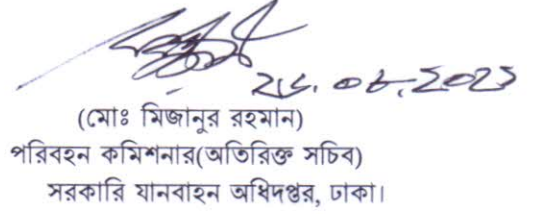 (মোঃ মিজানুর রহমান)
পরিবহন কমিশনার(অতিরিক্ত সচিব)
সরকারি যানবাহন অধিদপ্তর, ঢাকা।